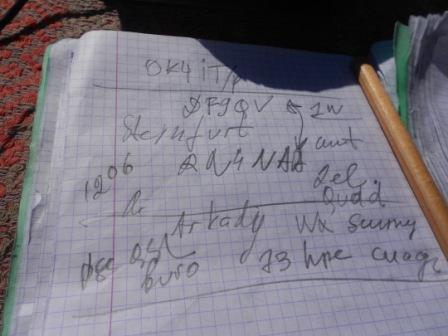 OK4IT/p
DF9QV 1W
Steinfurt ant
1206 QN4NAX 2el.
Quad
Arkady Wx Sunny
dse QSL buro 73 hpe cuagn